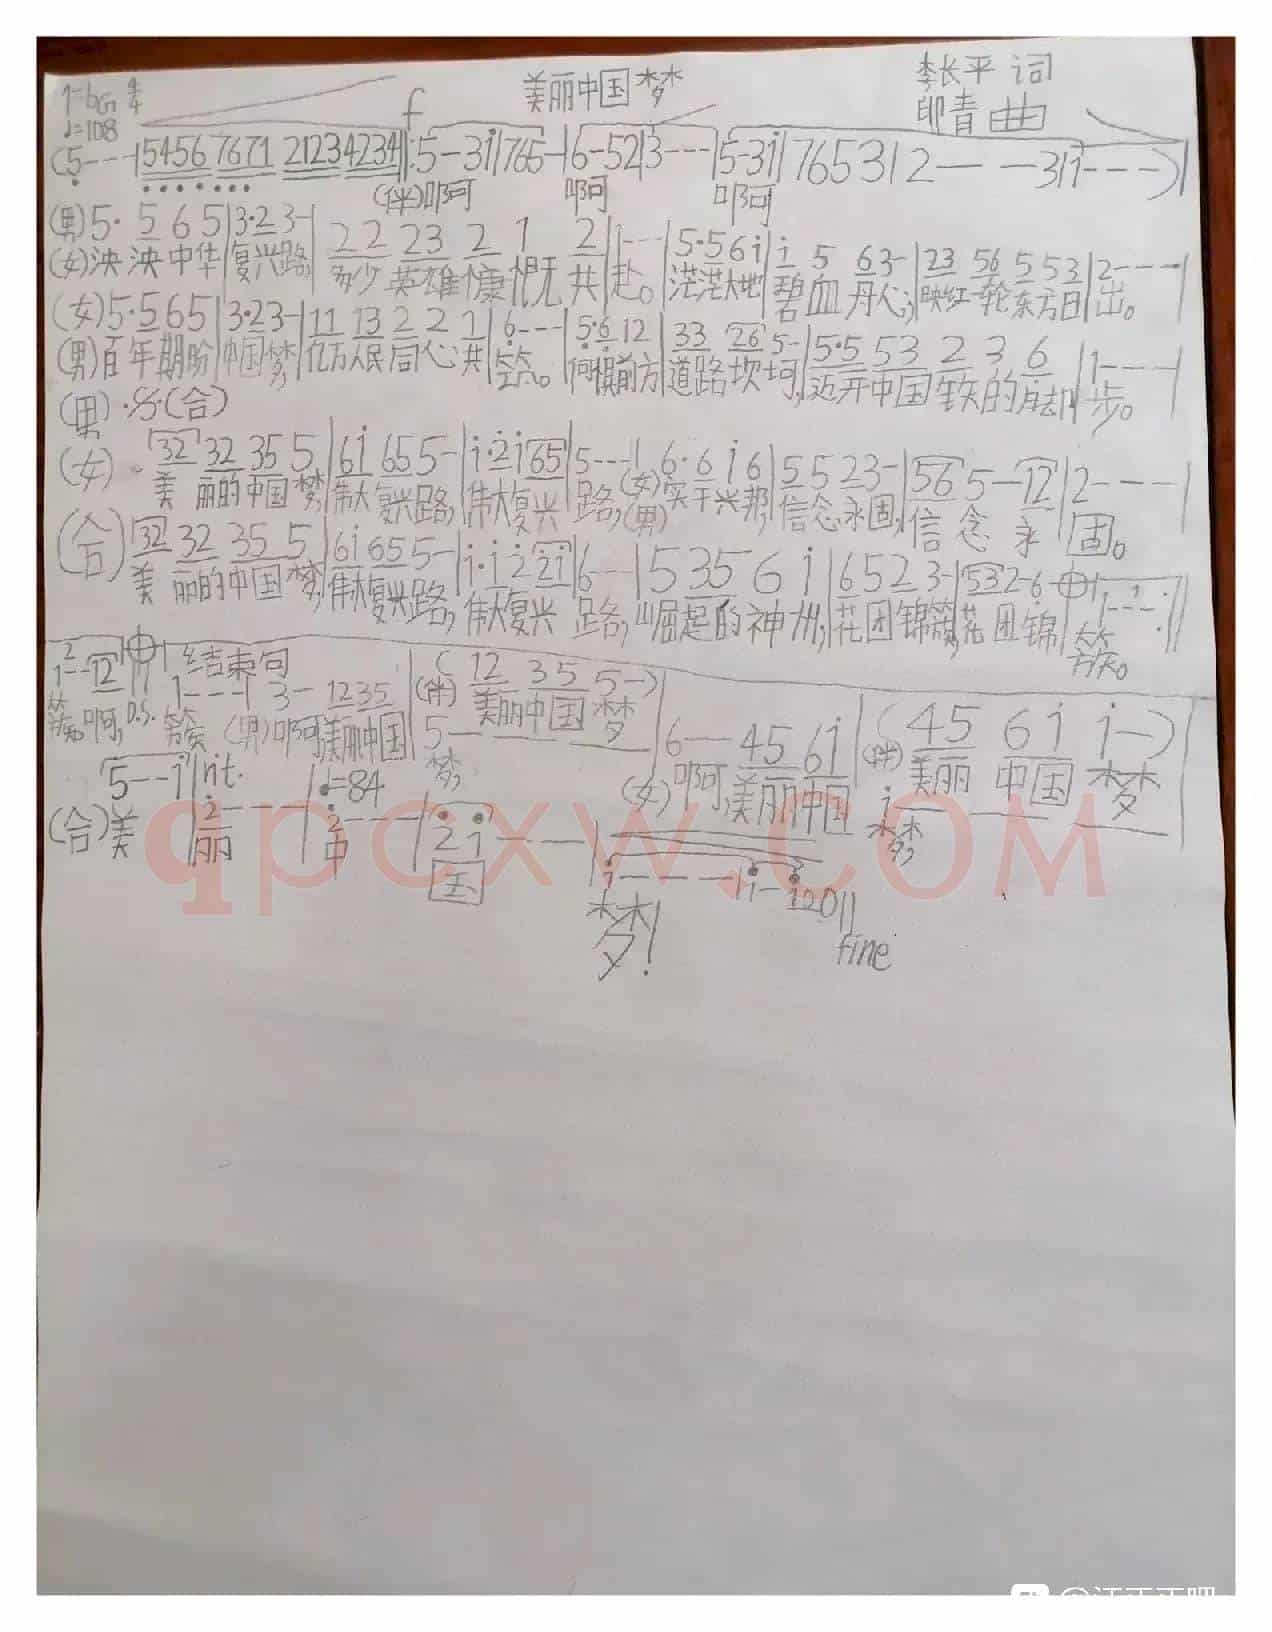 美丽中国梦
李长平 词
1=bG 4/4
印青 曲
♩=108
f
(5---|5456 7671 2123 4234|:5-3i|765-|6-52|3---|5-3i|7653|2---3|1---)|
(伴)啊呵 啊呵 啊呵
(男)5· 5 6 5|3·2 3-|2 2 23 2 1 2|1---|5·56i|i 5 63-|23 56 5 53|2---|
(女)泱泱中华 复兴路, 多少英雄慷慨共赴。茫茫大地 碧血丹心, 映红一轮东方日出。
(女)5·565|3·23-|11 13 2 2 1|6---|5·6 12|33 26 5-|5·5 53 2 3 6|1---|
(男)百年期盼 中国梦, 亿万人民同心共筑。何惧前方道路坎坷, 迈开中国铁的脚步。
(男)·𝄋·(合)
(女) 32 32 35 5|6i 65 5-|i·2i65|5---|6·6i6|55 23-|56 5-12|2---|
美丽的中国梦, 伟大复兴路, 伟大复兴路,(女)(男)实干兴邦, 信念永固, 信念永固。
(合)32 32 35 5|6i 65 5-|i·i 2 2i|6---|5 35 6 i|652 3-|532-6·|1---:||
美丽的中国梦, 伟大复兴路, 伟大复兴路, 崛起的神州, 花团锦簇, 花团锦簇。
2
1--12|| 结束句
1---|3- 1235|5---|(12 35 5-)|6-- 45 6i|i---|(45 6i i-)
簇啊, D.S. 簇 (男)啊美丽中国梦, (伴)美丽中国梦 (女)啊,美丽中国梦, (伴)美丽中国梦
5--i|rit. 2---|♩=84 2---|2i--|i----|i-i20||
(合)美丽中国梦!
fine
qpcxw.com